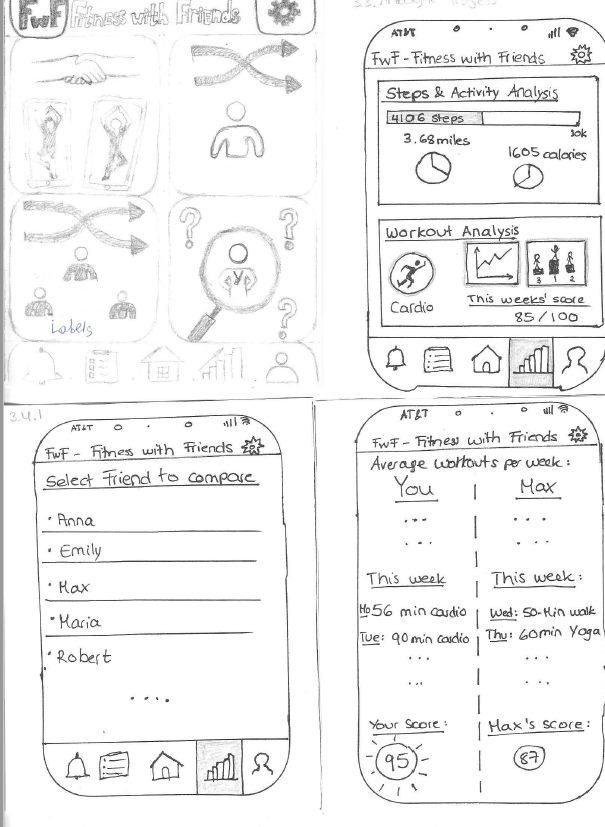 FwF Fitness with Friends
? ?
?
Labels
AT&T
FwF - Fitness with Friends
Steps & Activity Analysis
4106 steps
10k
3.68 miles
1605 calories
Workout Analysis
3 1 2
Cardio
This weeks' score
85/100
3.4.1
AT&T
FwF - Fitness with Friends
Select Friend to compare
· Anna
· Emily
· Max
· Maria
· Robert
....
AT&T
FwF - Fitness with Friends
Average workouts per week:
You
Max
... ...
... ...
This week
This week:
Mo 56 min cardio
Wed: 50-Min walk
Tue: 90 min cardio
Thu: 60min Yoga
... ...
... ...
Your Score:
Max's score:
95
87